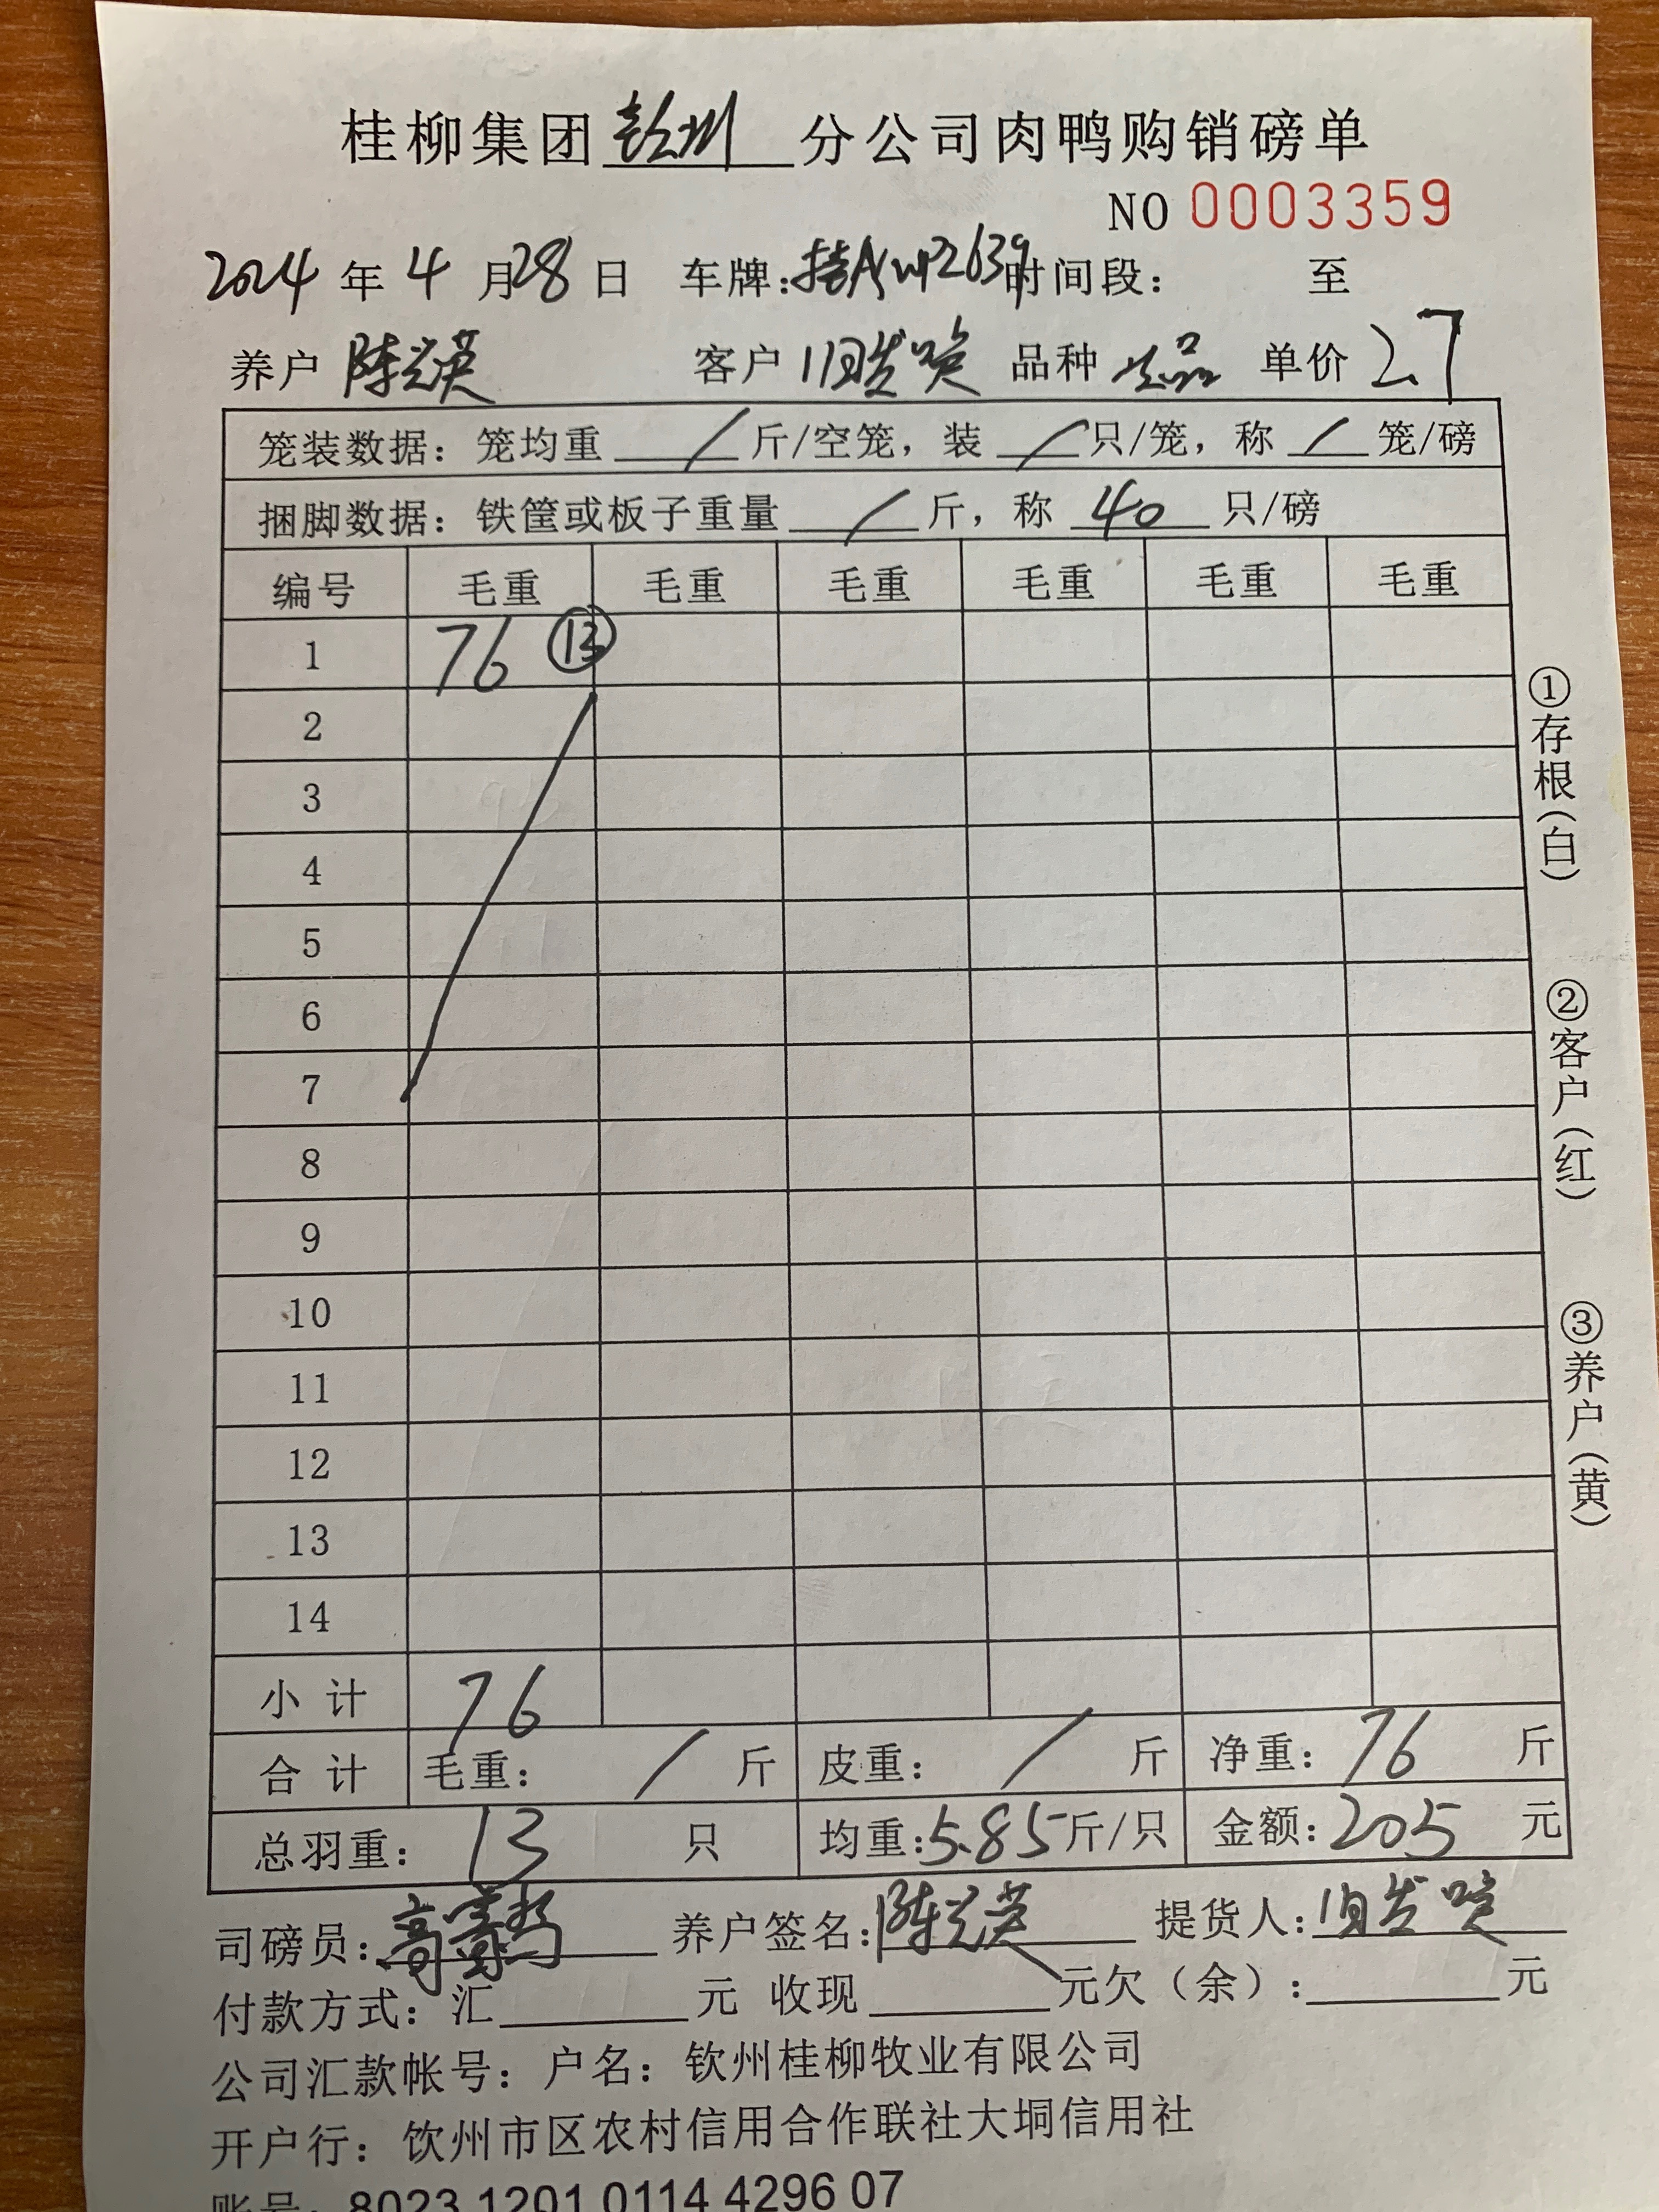 桂柳集团 钦州 分公司肉鸭购销磅单
NO 0003359
2024 年 4 月 28 日 车牌: 2639 时间段: 至
养户 陈兰英 客户 品种 单价 2.7
笼装数据: 笼均重 / 斤/空笼, 装 / 只/笼, 称 / 笼/磅
捆脚数据: 铁筐或板子重量 / 斤, 称 40 只/磅
编号 毛重 毛重 毛重 毛重 毛重 毛重
1 76 ⑬
2
3
4
5
6
7
8
9
10
11
12
13
14
小计 76
合计 毛重: / 斤 皮重: / 斤 净重: 76 斤
总羽重: 13 只 均重: 5.85 斤/只 金额: 205 元
司磅员: 养户签名: 陈兰英 提货人:
付款方式: 汇 元 收现 元欠(余): 元
公司汇款帐号: 户名: 钦州桂柳牧业有限公司
开户行: 钦州市区农村信用合作联社大垌信用社
账号: 8023 1201 0114 4296 07
①存根(白)
②客户(红)
③养户(黄)